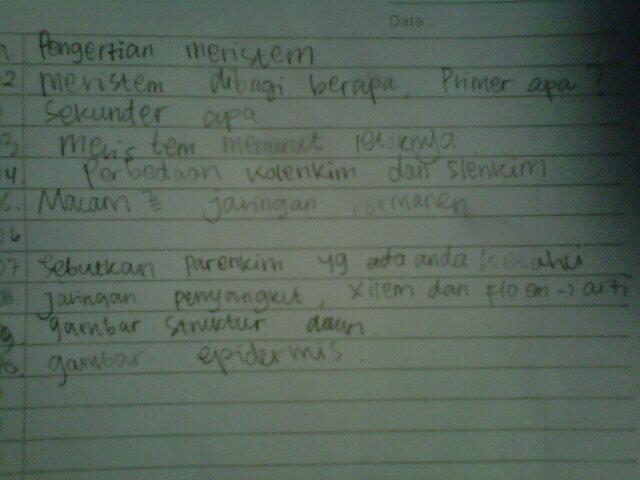 Date :
1 Pengertian meristem
2 meristem dibagi berapa, Primer apa ?
Sekunder apa
3 meristem menurut letaknya
4. Perbedaan kolenkim dan slenkim
5. Macam² jaringan permanen
06
07 Sebutkan parenkim yg ada anda ketahui
08 jaringan penyangkut, xilem dan floem → arti
9 gambar struktur daun.
10. gambar epidermis.